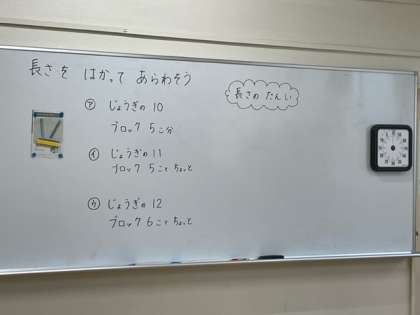 長さを はかって あらわそう
長さの たんい
㋐ じょうぎの 10
ブロック 5こ分
㋑ じょうぎの 11
ブロック 5こと ちょっと
㋒ じょうぎの 12
ブロック 6こと ちょっと